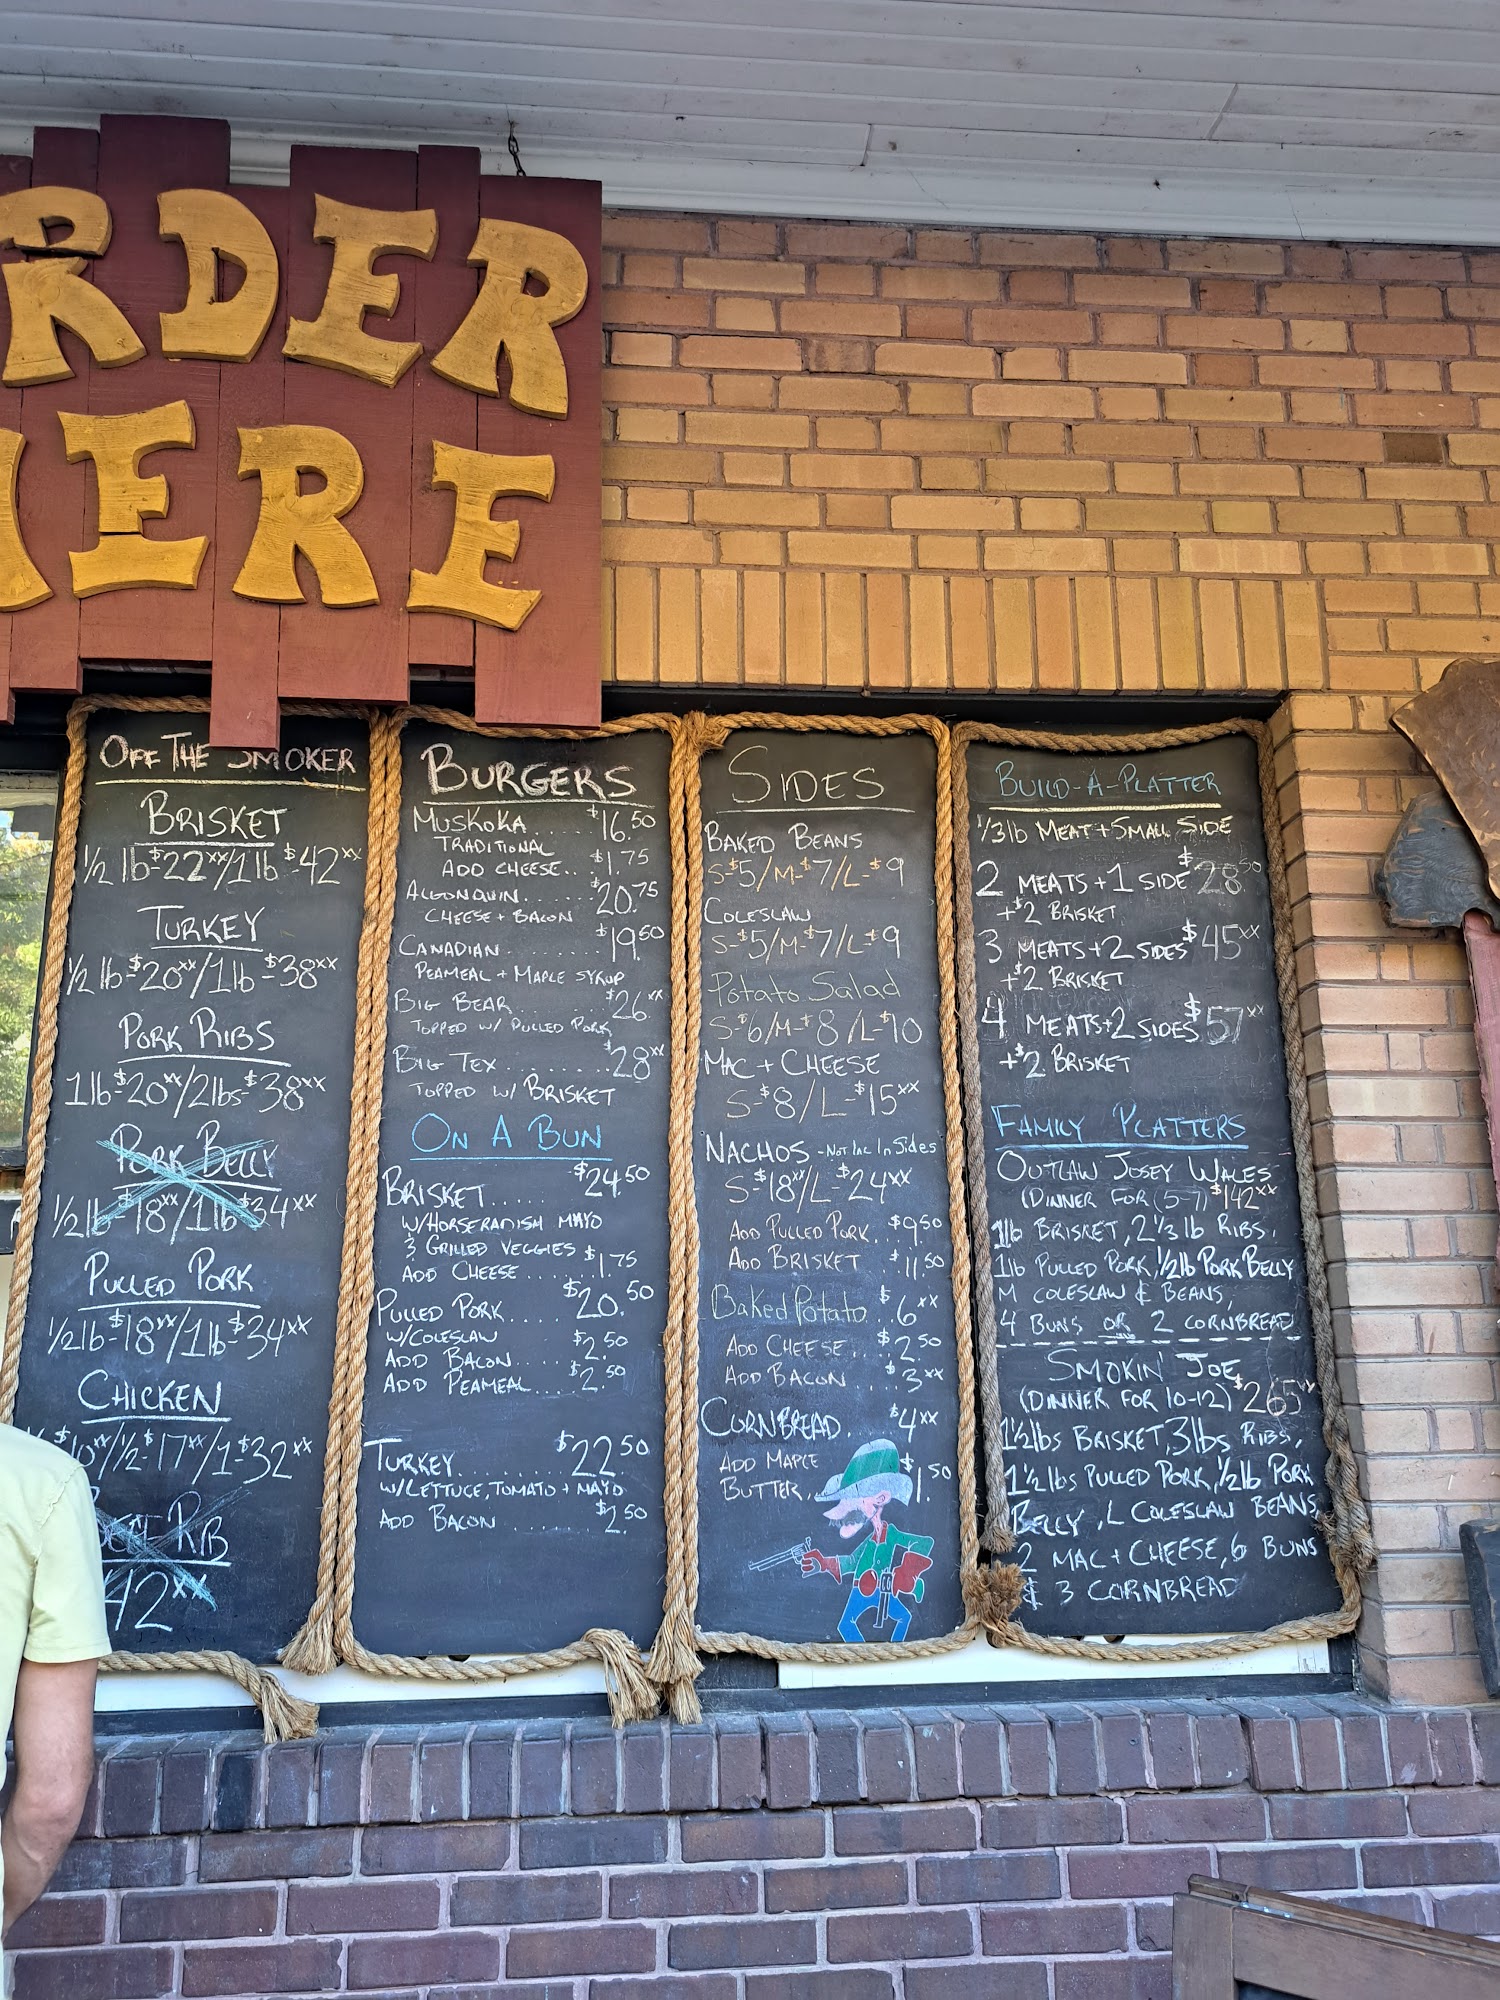 ORDER
HERE
OFF THE SMOKER
BRISKET
1/2 lb-$22xx/1 lb-$42xx
TURKEY
1/2 lb-$20xx/1lb-$38xx
PORK RIBS
1lb-$20xx/2lbs-$38xx
PORK BELLY
1/2lb-$18xx/1lb-$34xx
PULLED PORK
1/2lb-$18xx/1lb-$34xx
CHICKEN
$10xx/1/2-$17xx/1-$32xx
BEEF RIB
42xx
BURGERS
MUSKOKA..... $16.50
TRADITIONAL
ADD CHEESE.. $1.75
ALGONQUIN....... $20.75
CHEESE + BACON
CANADIAN......... $19.50
PEAMEAL + MAPLE SYRUP
BIG BEAR......... $26.xx
TOPPED W/ PULLED PORK
BIG TEX........ $28xx
TOPPED W/ BRISKET
ON A BUN
BRISKET..... $24.50
W/HORSERADISH MAYO
& GRILLED VEGGIES
ADD CHEESE...... $1.75
PULLED PORK.... $20.50
W/COLESLAW
ADD BACON.... $2.50
ADD PEAMEAL.... $2.50
TURKEY.......... $22.50
W/LETTUCE, TOMATO + MAYO
ADD BACON ....... $2.50
SIDES
BAKED BEANS
S-$5/M-$7/L-$9
COLESLAW
S-$5/M-$7/L-$9
Potato Salad
S-$6/M-$8/L-$10
MAC + CHEESE
S-$8/L-$15xx
NACHOS -Not Inc In Sides
S-$18xx/L-$24xx
ADD PULLED PORK.. $9.50
ADD BRISKET .... $11.50
Baked Potato... $6xx
ADD CHEESE... $2.50
ADD BACON .... $3xx
CORNBREAD. $4xx
ADD MAPLE
BUTTER... $1.50
BUILD-A-PLATTER
1/3lb MEAT + SMALL SIDE
2 MEATS + 1 SIDE $28.50
+$2 BRISKET
3 MEATS + 2 SIDES $45xx
+$2 BRISKET
4 MEATS + 2 SIDES $57xx
+$2 BRISKET
FAMILY PLATTERS
OUTLAW JOSEY WALES
(DINNER FOR (5-7) $142xx
1lb BRISKET, 2 1/3 lb RIBS,
1lb PULLED PORK, 1/2lb PORK BELLY
M COLESLAW & BEANS,
4 BUNS OR 2 CORNBREAD
SMOKIN' JOE
(DINNER FOR 10-12) $265xx
1 1/2lbs BRISKET, 3lbs RIBS,
1 1/2lbs PULLED PORK, 1/2lb PORK
BELLY, L COLESLAW BEANS,
2 MAC + CHEESE, 6 BUNS
& 3 CORNBREAD